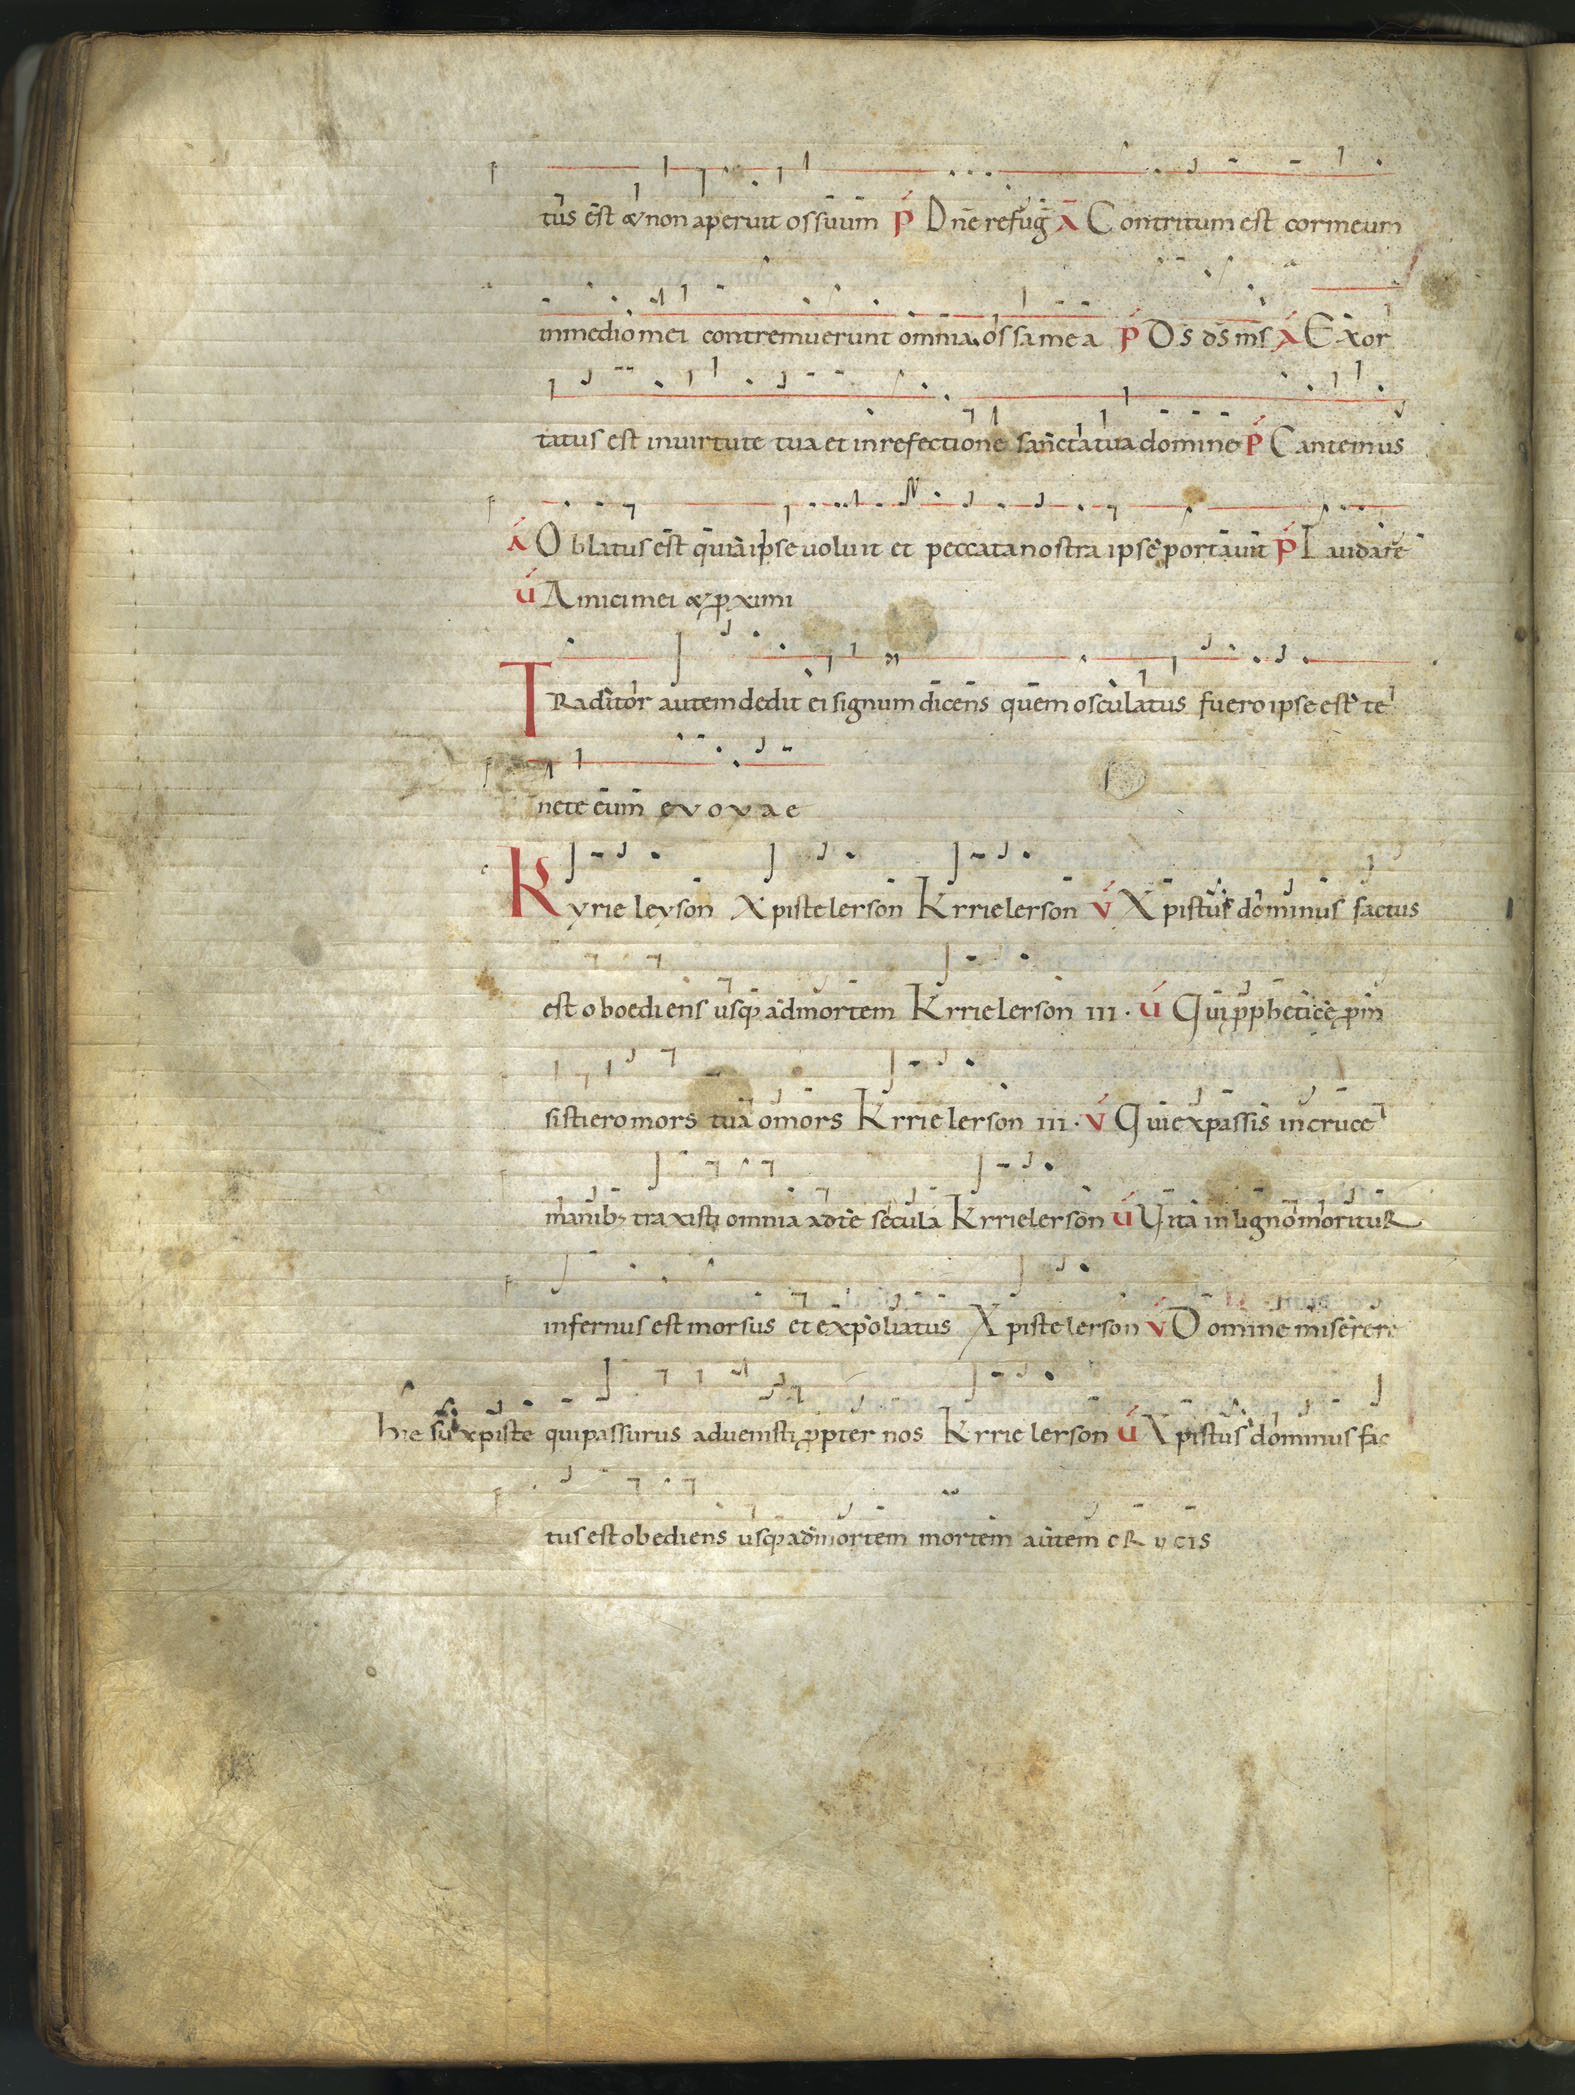 tus est & non aperuit os suum p̄ Dn̄e refuḡ A Contritum est cor meum
in medio mei contremuerunt omnia ossa mea p̄ Ds ds ms A Exor
tatus est in uirtute tua et in refectione sancta tua domine p̄ Cantemus
A Oblatus est quia ipse uoluit et peccata nostra ipse portauit p̄ Laudate
V Amici mei & ꝓximi
Traditor autem dedit ei signum dicens quem osculatus fuero ipse est te
nete eum evovae
Kyrie leyson Xpiste leison Kirrie leison V Xpistus dominus factus
est oboediens usq; ad mortem Kirrie leison III · V Qui ꝓphetice ꝓmi
sisti ero mors tua o mors Kirrie leison III · V Qui expassis in cruce
manib; traxisti omnia ad te secula Kirrie leison V Vita in ligno moritur
infernus est morsus et expoliatus Xpiste leison V Domine miserere
hiesu xpiste qui passurus aduenisti ꝓpter nos Kirrie leison V Xpistus dominus fac
tus est obediens usq; ad mortem mortem autem cRucis